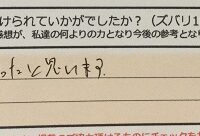 けられていかがでしたか？（ズバリ1
感想が、私達の何よりの力となり今後の参考となり
ったと思います。